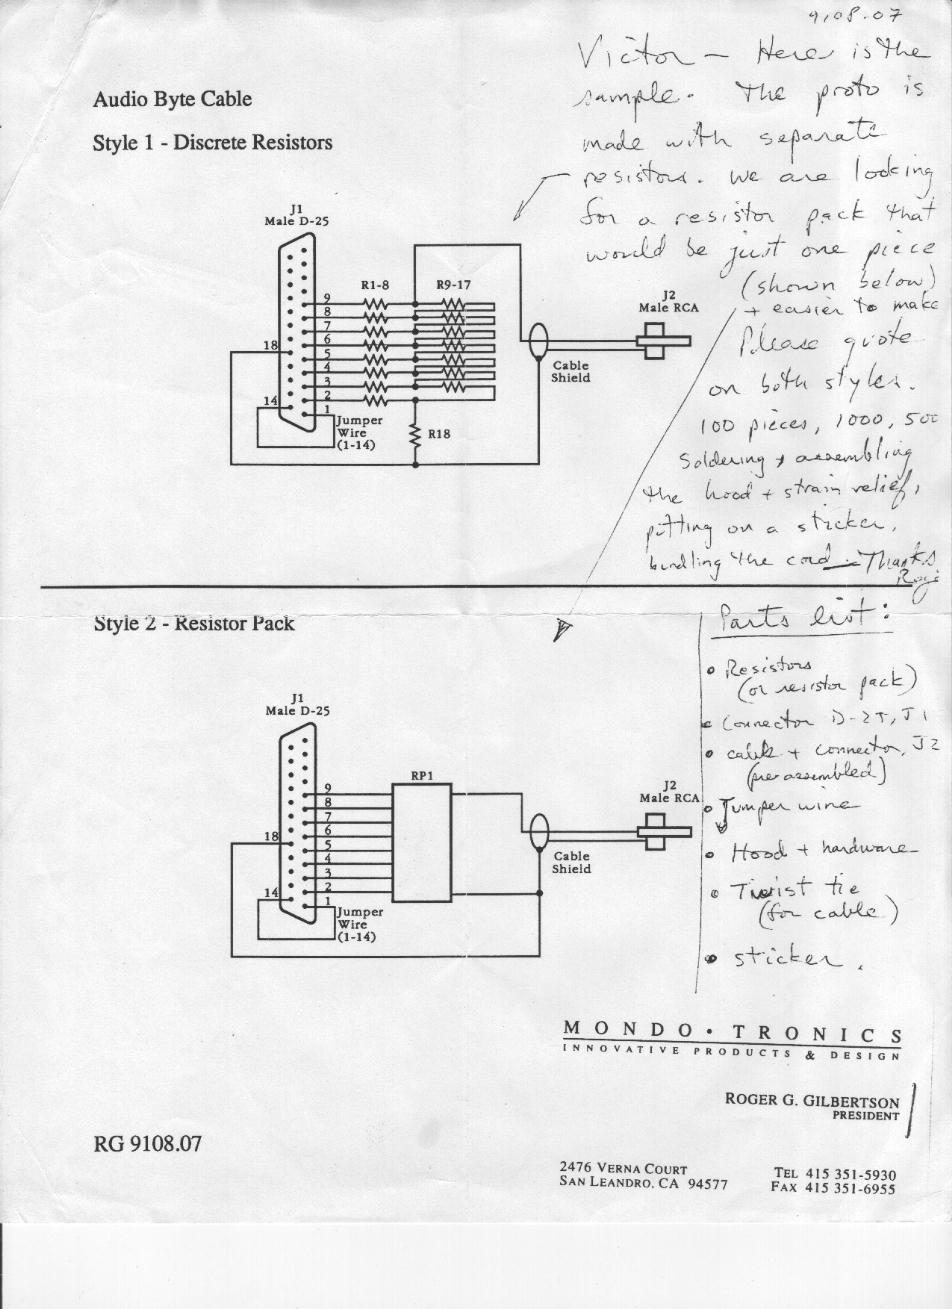 9108.07
Victor - Here is the
sample. The proto is
made with separate
resistors. We are looking
for a resistor pack that
would be just one piece
(shown below)
+ easier to make
Please quote
on both styles.
100 pieces, 1000, 500
Soldering + assembling
the hood + strain relief,
putting on a sticker,
bundling the cord - Thanks
Roger
Audio Byte Cable
Style 1 - Discrete Resistors
J1
Male D-25
R1-8
R9-17
J2
Male RCA
9
8
7
18
6
5
4
3
14
2
1
Cable
Shield
Jumper
Wire
(1-14)
R18
Style 2 - Resistor Pack
J1
Male D-25
RP1
J2
Male RCA
9
8
7
18
6
5
4
3
14
2
1
Cable
Shield
Jumper
Wire
(1-14)
Parts list:
• Resistors
(or resistor pack)
• Connector D-25, J1
• cable + connector, J2
(pre assembled)
• Jumper wire
• Hood + hardware
• Twist tie
(for cable)
• sticker.
MONDO • TRONICS
INNOVATIVE PRODUCTS & DESIGN
ROGER G. GILBERTSON
PRESIDENT
RG 9108.07
2476 VERNA COURT
SAN LEANDRO, CA 94577
TEL 415 351-5930
FAX 415 351-6955